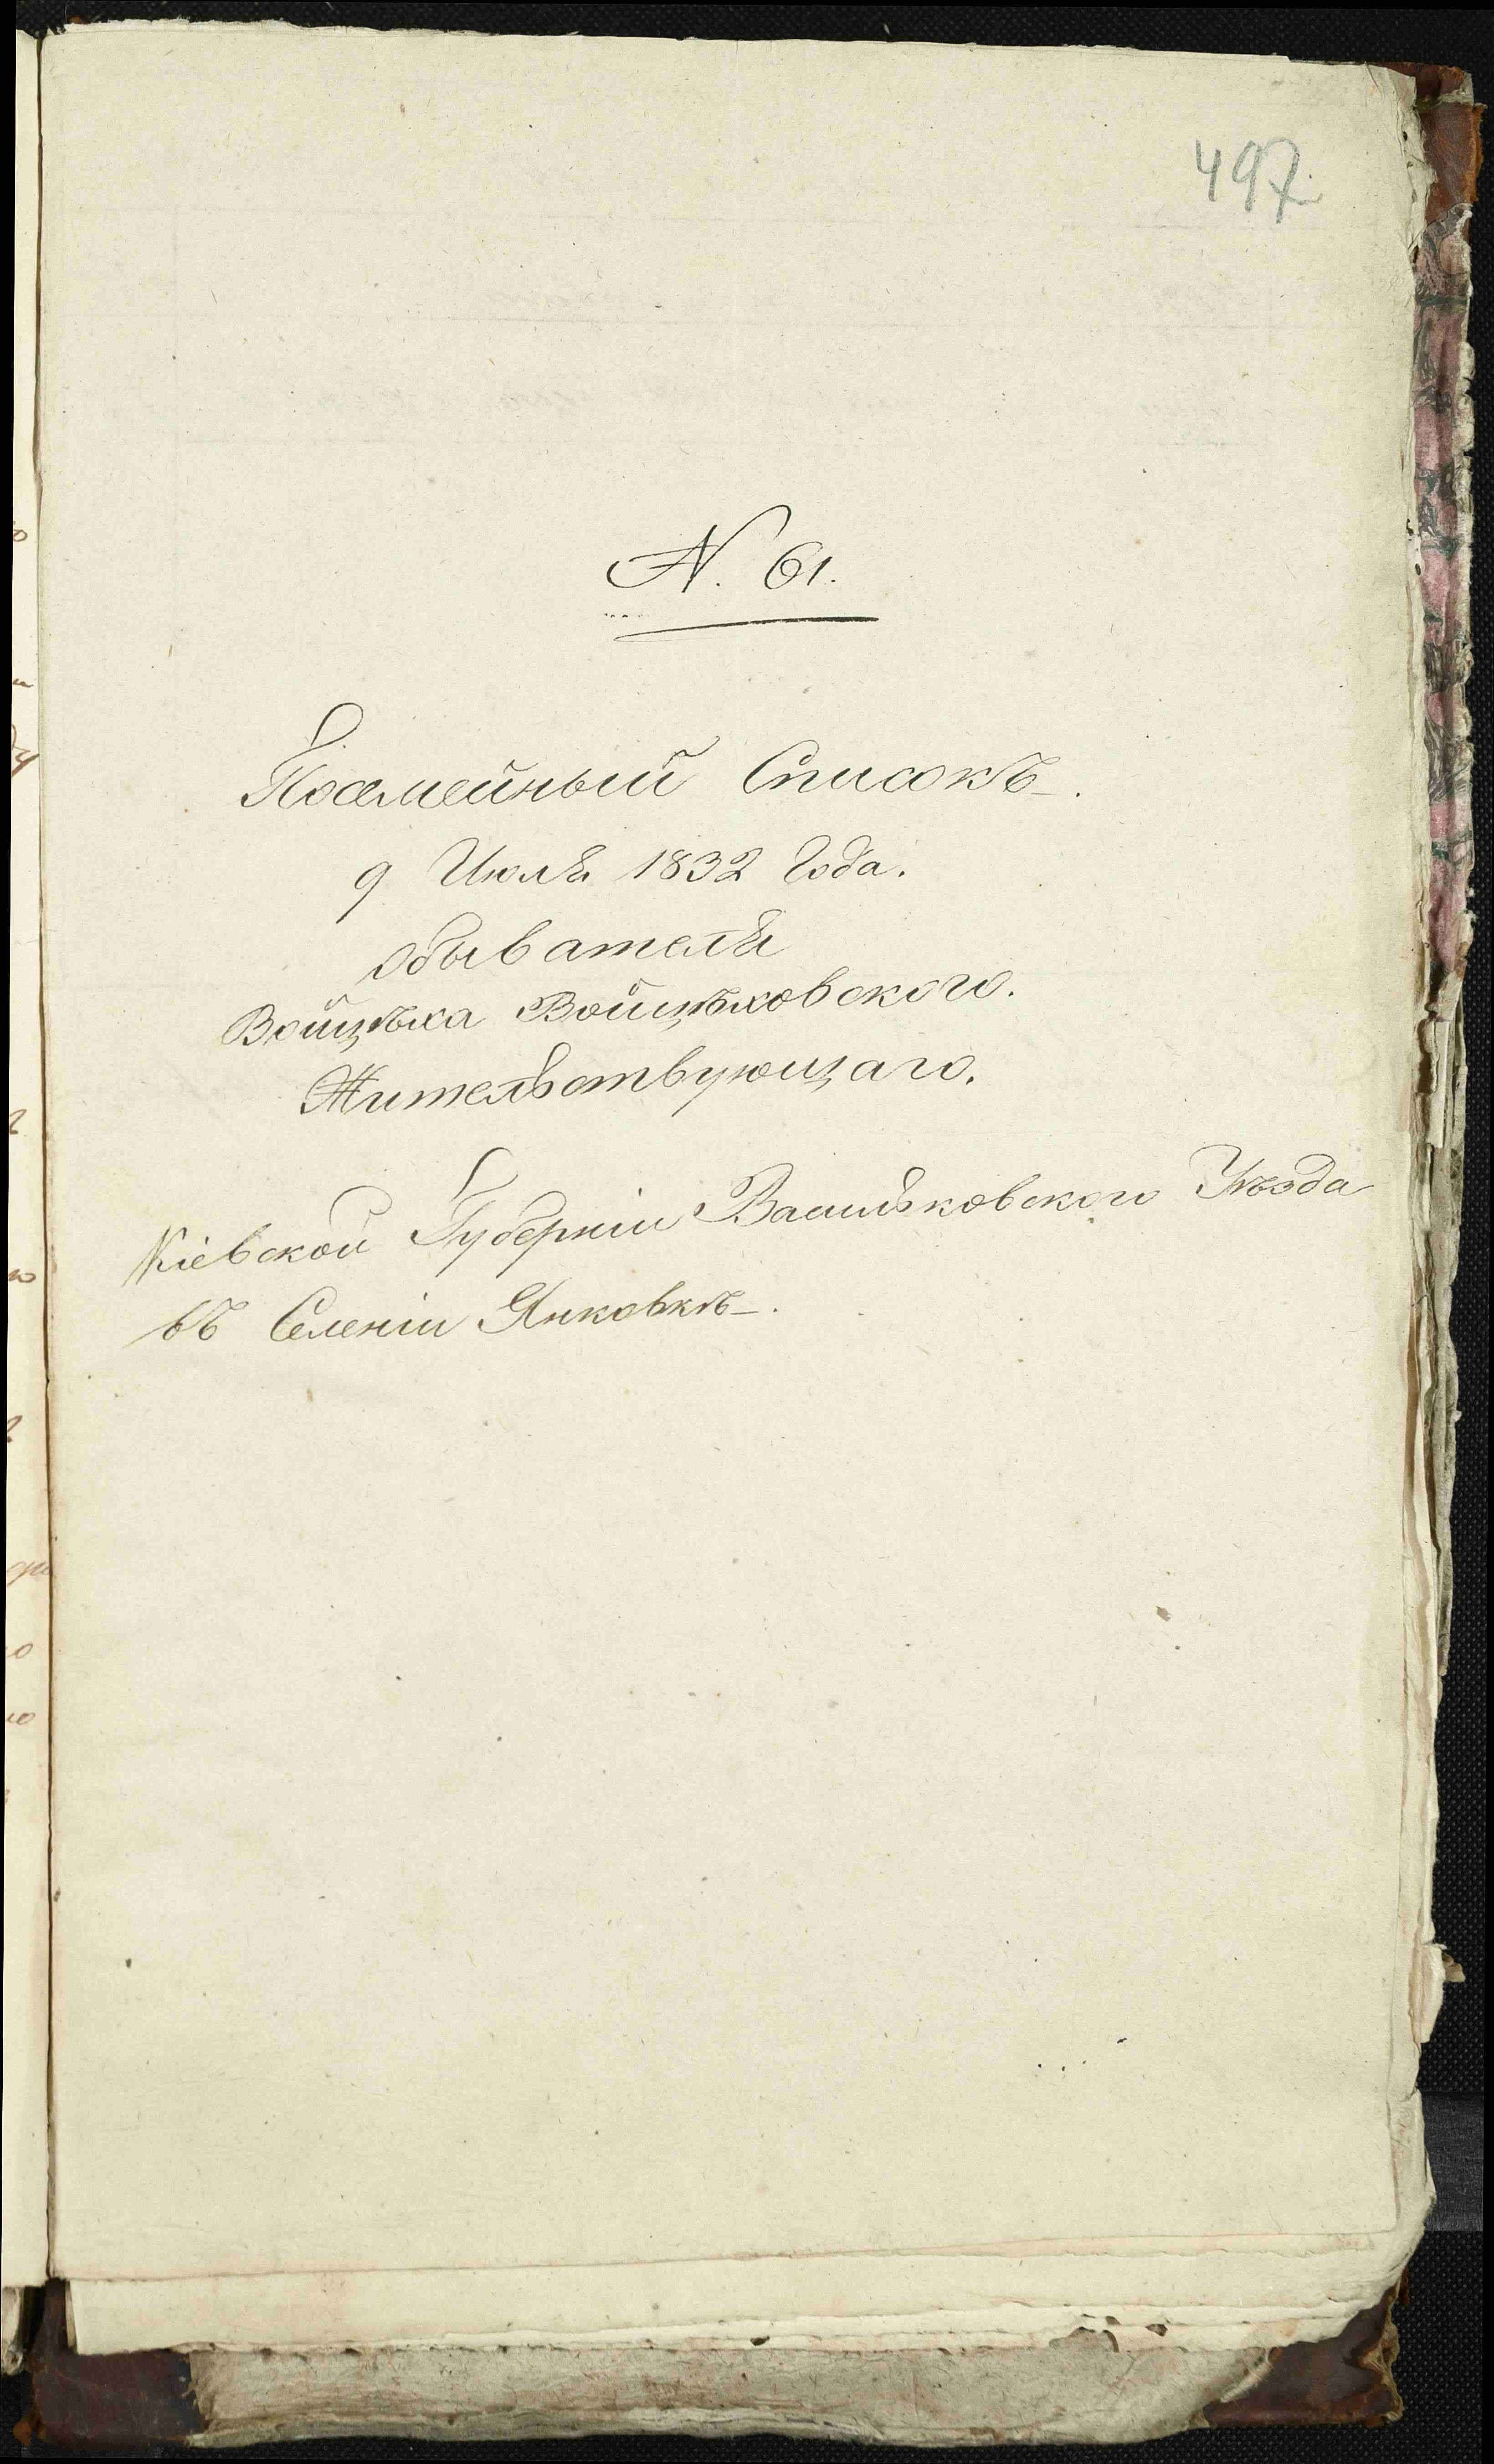 497
N. 61.
Посемейный Списокъ.
9 Июля 1832 Года.
обывателя
Войцѣха Войцѣховского.
Жительствующаго.
Кіевской Губерніи Васильковского Уѣзда
въ Селеніи Янковкѣ.